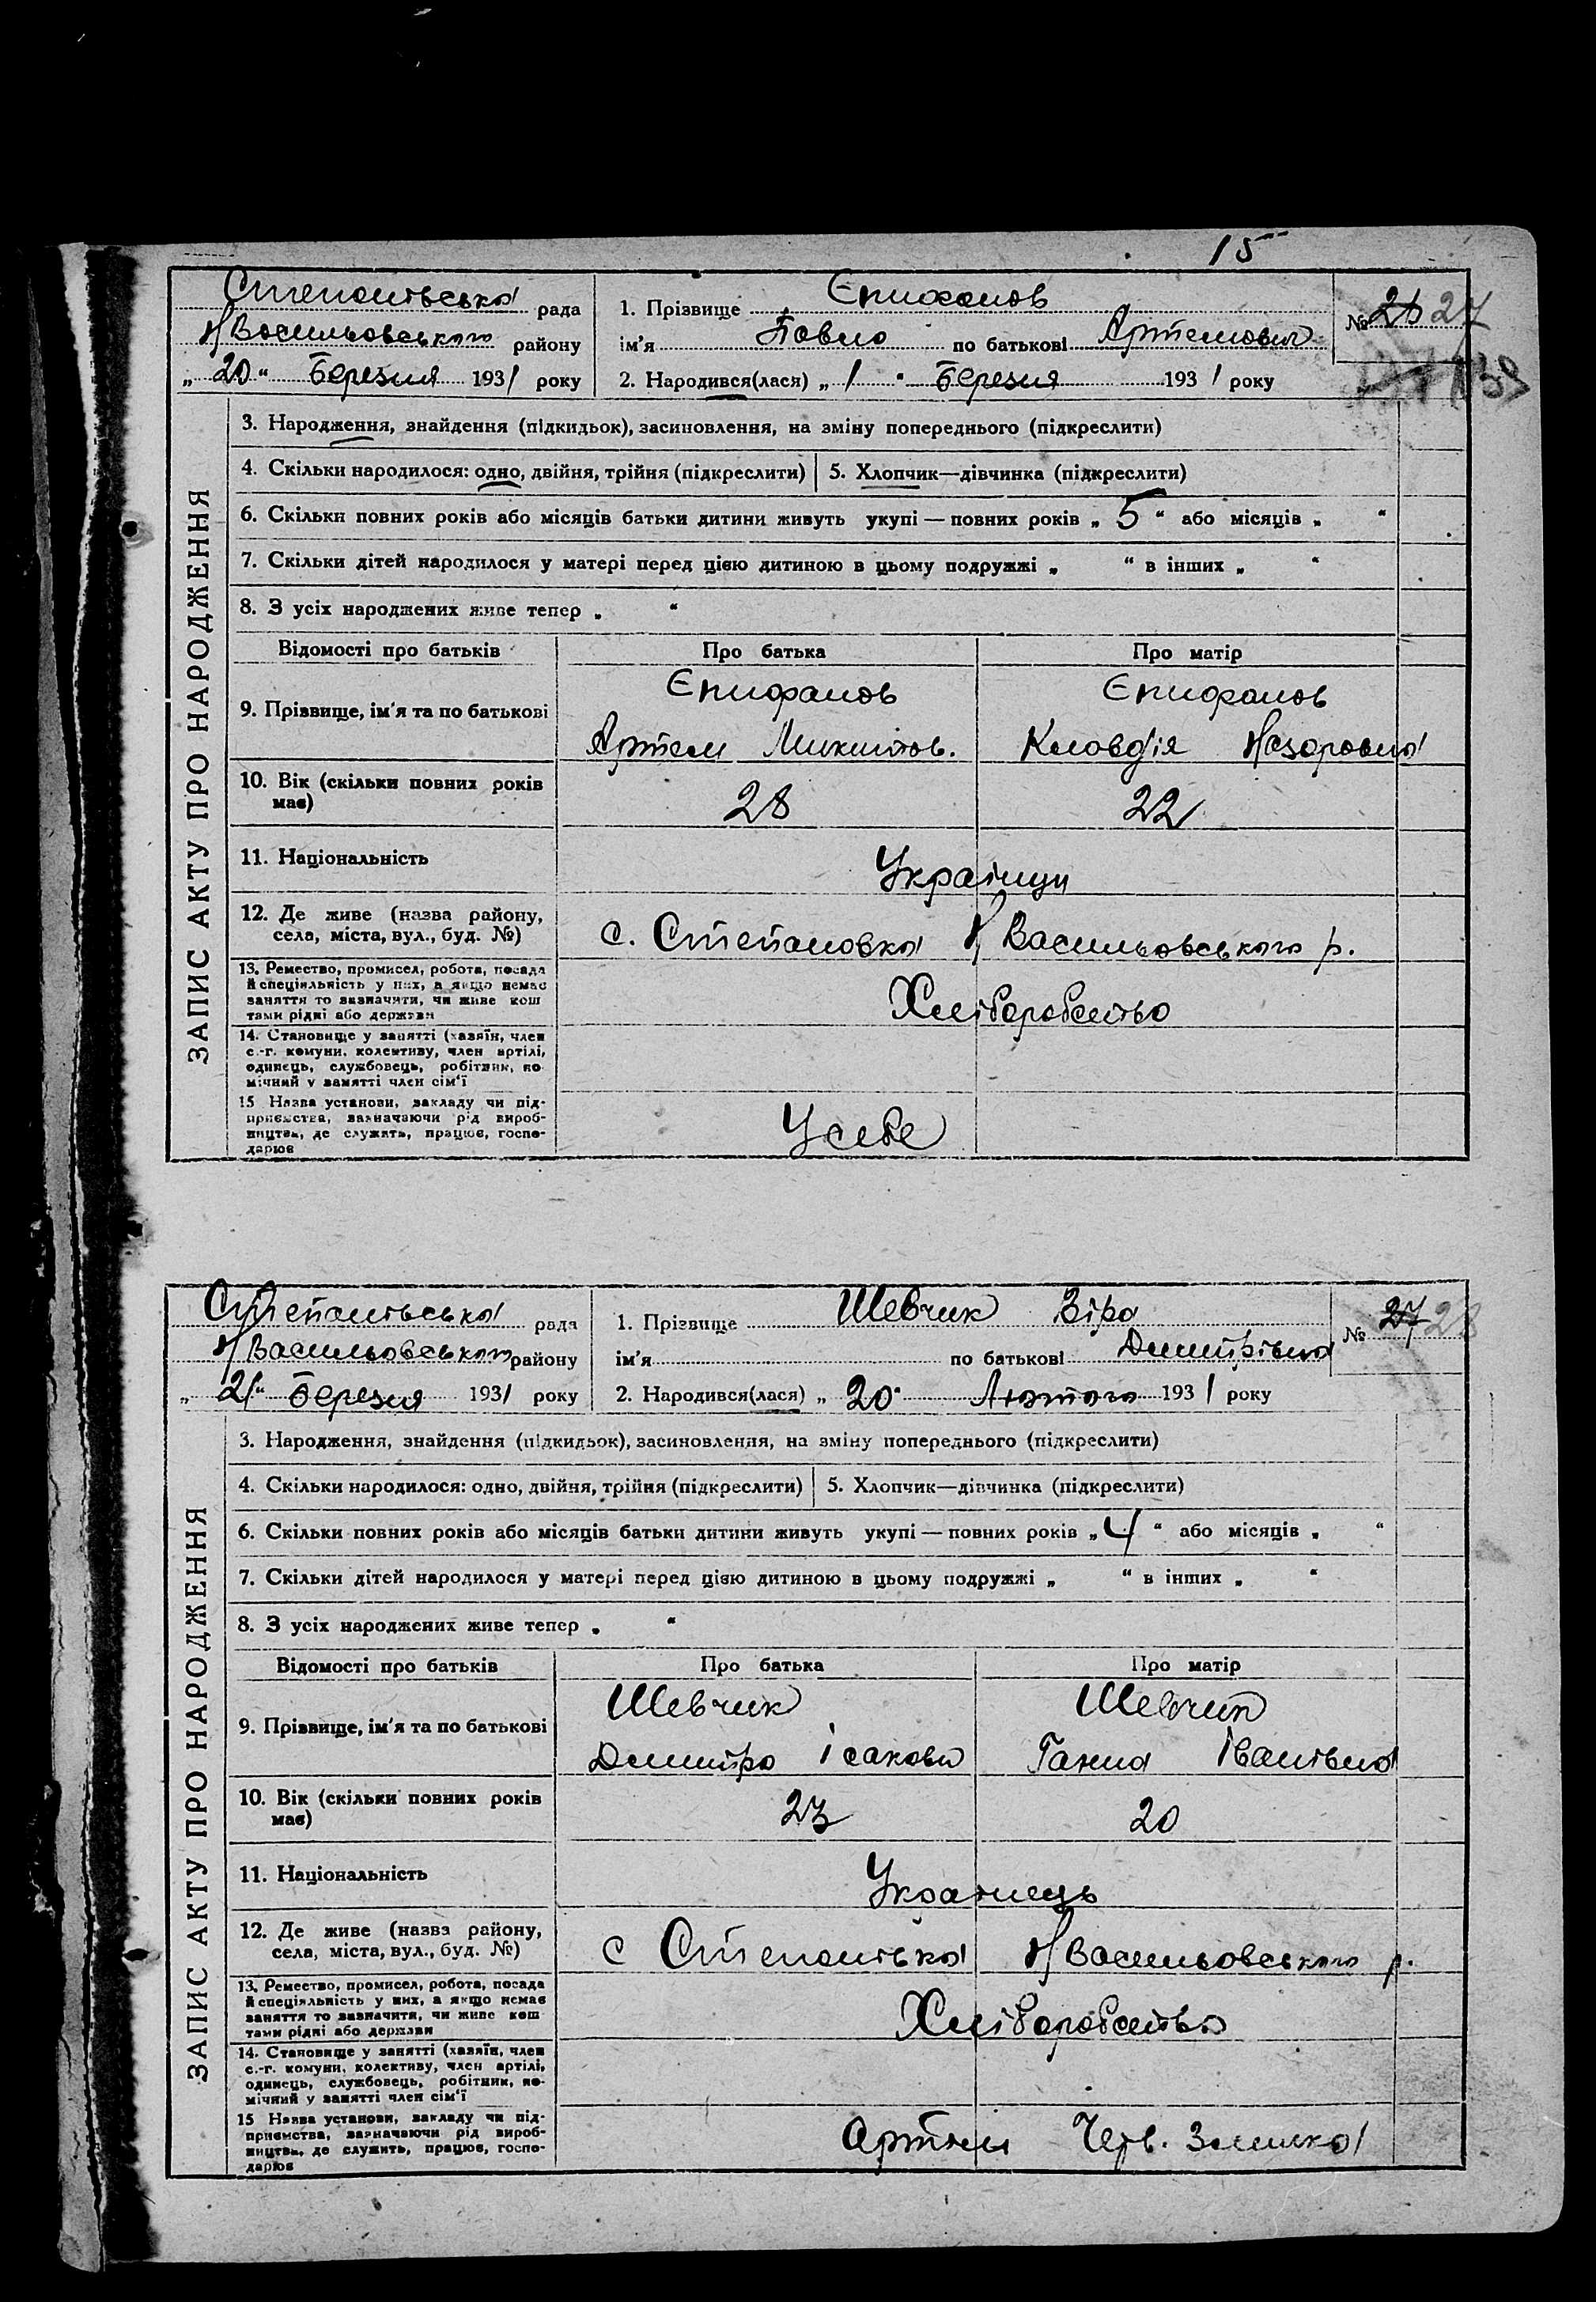 15
Степанівська рада
Н Васильовського району
„ 20 “ Березня 1931 року
1. Прізвище Єпифанов
ім'я Павло по батькові Артемович
2. Народився(лася) „ 1 “ Березня 1931 року
№ 26 27
ЗАПИС АКТУ ПРО НАРОДЖЕННЯ
3. Народження, знайдення (підкидьок), засиновлення, на зміну попереднього (підкреслити)
4. Скільки народилося: одно, двійня, трійня (підкреслити) 5. Хлопчик—дівчинка (підкреслити)
6. Скільки повних років або місяців батьки дитини живуть укупі — повних років „ 5 “ або місяців „ “
7. Скільки дітей народилося у матері перед цією дитиною в цьому подружжі „ “ в інших „ “
8. З усіх народжених живе тепер „ “
Відомості про батьків Про батька Про матір
9. Прізвище, ім'я та по батькові
Єпифанов Єпифанов
Артем Микитов. Клавдія Назаровна
10. Вік (скільки повних років
має)
28 22
11. Національність
Українци
12. Де живе (назва району,
села, міста, вул., буд. №)
с. Степановка Н Васильовського р.
13. Ремество, промисел, робота, посада
й спеціяльність у них, а якщо немає
заняття то зазначити, чи живе кош
тами рідні або держави
Хліборобство
14. Становище у занятті (хазяїн, член
с.-г. комуни, колективу, член артілі,
одинець, службовець, робітник, по
мічний у занятті член сім'ї
15 Назва установи, закладу чи під-
приємства, зазначаючи рід вироб-
ництва, де служить, працює, госпо-
дарює
У себе
Степанівська рада
Н Васильовського району
„ 21 “ Березня 1931 року
1. Прізвище Шевчик Віра
ім'я по батькові Дмитрівна
2. Народився(лася) „ 20 “ Лютого 1931 року
№ 27 28
ЗАПИС АКТУ ПРО НАРОДЖЕННЯ
3. Народження, знайдення (підкидьок), засиновлення, на зміну попереднього (підкреслити)
4. Скільки народилося: одно, двійня, трійня (підкреслити) 5. Хлопчик—дівчинка (підкреслити)
6. Скільки повних років або місяців батьки дитини живуть укупі — повних років „ 4 “ або місяців „ “
7. Скільки дітей народилося у матері перед цією дитиною в цьому подружжі „ “ в інших „ “
8. З усіх народжених живе тепер „ “
Відомості про батьків Про батька Про матір
9. Прізвище, ім'я та по батькові
Шевчик Шевчик
Дмитро Ісакови Ганна Іванівна
10. Вік (скільки повних років
має)
23 20
11. Національність
Українець
12. Де живе (назва району,
села, міста, вул., буд. №)
с Степанівка Н Васильовського р.
13. Ремество, промисел, робота, посада
й спеціяльність у них, а якщо немає
заняття то зазначити, чи живе кош
тами рідні або держави
Хліборобство
14. Становище у занятті (хазяїн, член
с.-г. комуни, колективу, член артілі,
одинець, службовець, робітник, по-
мічний у занятті член сім'ї
15 Назва установи, закладу чи під-
приємства, зазначаючи рід вироб-
ництва, де служить, працює, госпо-
дарює
Артіль Черв.